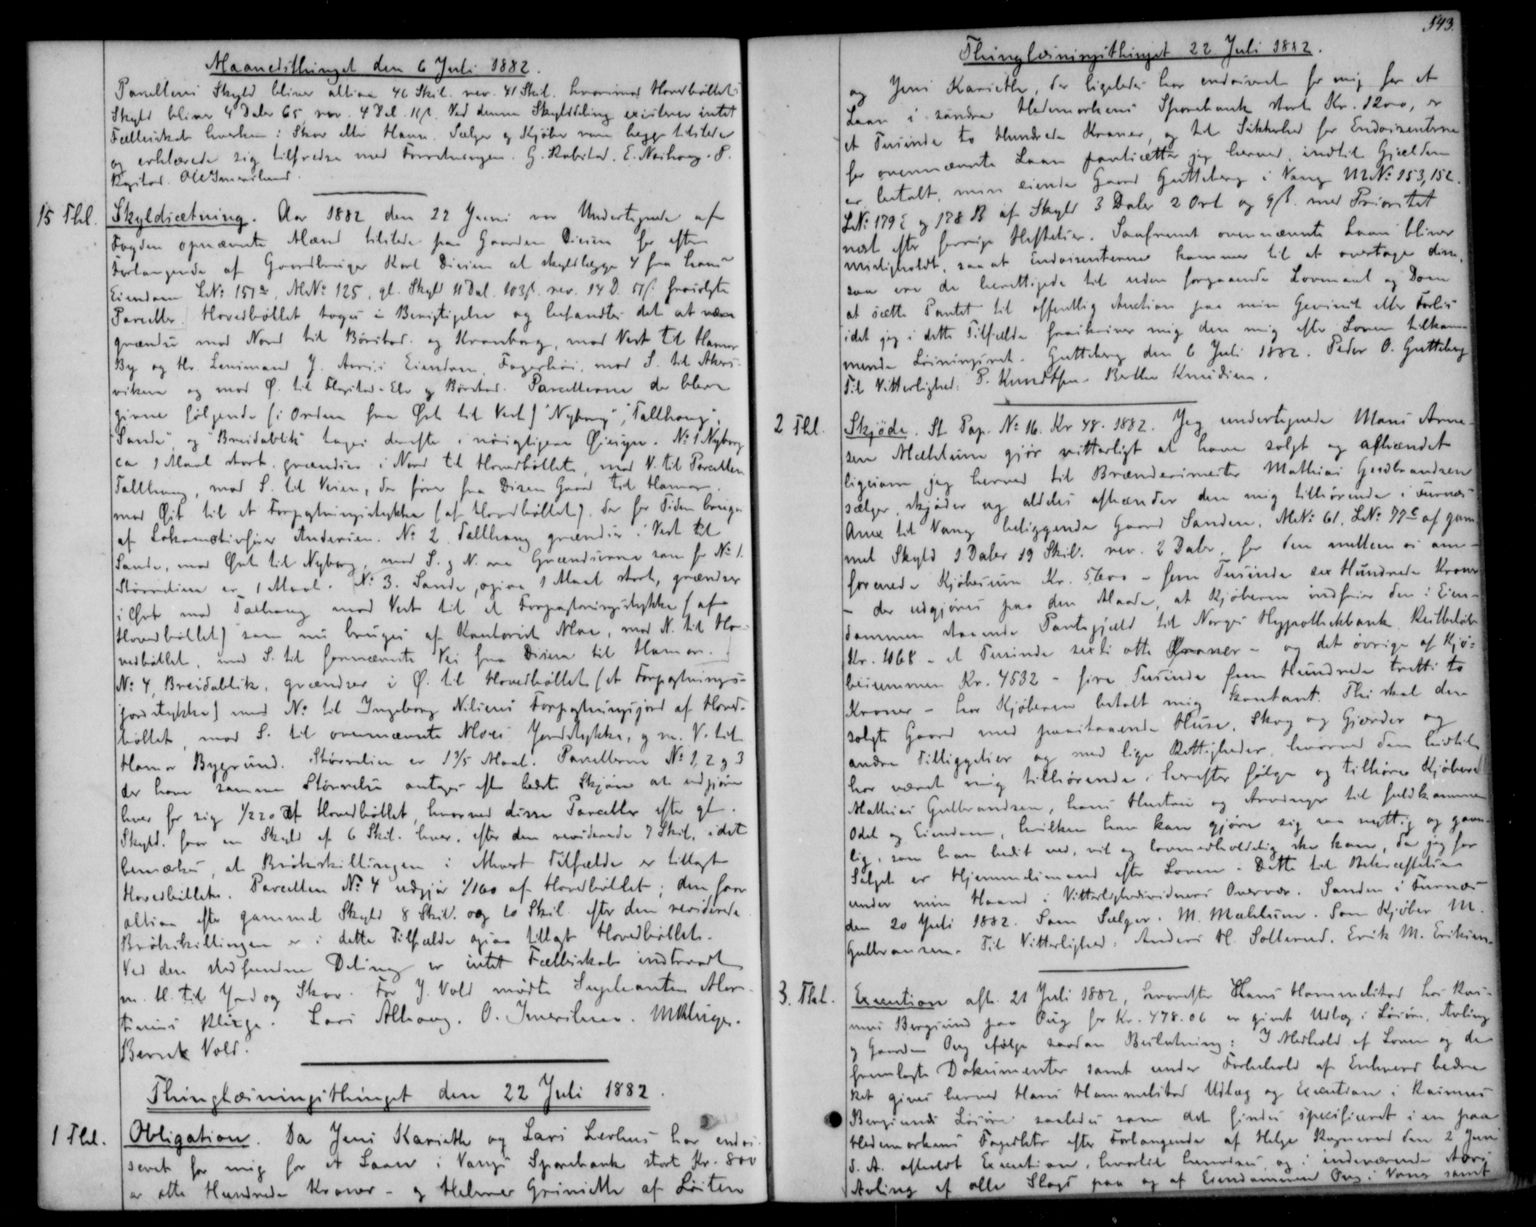 Maanedsthinget den 6 Juli 1882.
Parcellens Skyld bliver altsaa 46 Skil. rev. 41 Skil. hvorimod Hovedbøllets
Skyld bliver 4 Daler 65 rev. 4 Dal. Ved denne Skylddeling existerer intet
Fælleskab hverken i Skov eller Havn. Sælger og Kjøber vare begge tilstede
og erklærede sig tilfredse med Forretningen. G. Rabstad. E. Næshaug. P.
15 Thl. Skyldsætning. Aar 1882 den 22 Juni var Undertegnede af
Fogden opnævnte Mænd tilstede paa Gaarden Disen for efter
Forlangende af Gaardbruger Karl Disen at skyldlægge 4 fra hans
Eiendom LNo 151a, MNo 125, gl. Skyld 11 Dal. 103 rev. 14 D. fraskilte
Parceller. Hovedbøllet toges i Besigtigelse og befandtes det at være
grændse mod Nord til Børstad og Kronborg, mod Vest til Hamar
By og Hr. Lensmand J. Eiendom, Fagerhøi, mod S. til Akers-
viken og mod Ø. til Flagstad-Elv og Børstad. Parcellerne der bleve
givne følgende (i Orden fra Øst til Vest) "Nyborg", "Tallhaug",
"Sande" og "Breidablik" toges derefter i nøiagtigere Øiesyn. No 1 Nyborg
ca 1 Maal stort, grændser i Nord til Hovedbøllet, mod V. til Parcellen
Tallhaug, mod S. til Veien, der fører fra Disen Gaard til Hamar.
mod Øst til et Forpagtningsstykke (af Hovedbøllet) der for Tiden bruges
af Lokomotivfører Andersen. No 2. Tallhaug grændser i Vest til
Sande, mod Øst til Nyborg, mod S. og N. ere Grændserne som for No 1.
Størrelsen er 1 Maal. No 3. Sande, ogsaa 1 Maal stort, grændser
i Øst mod Talhaug mod Vest til et Forpagtningsstykke (af
Hovedbøllet) som nu bruges af Kantorist Moe, mod N. til Ho-
vedbøllet, mod S. til fornævnte Vei fra Disen til Hamar.
No 4, Breidablik, grændser i Ø. til Hovedbøllet (et Forpagtnings-
jordstykke) mod N. til Ingeborg Nilsens Forpagtningsjord af Hoved-
bøllet, mod S. til ovennævnte Moes Jordstykke, og m. V. til
Hamar Bygrund. Størrelsen er 1 3/5 Maal. Parcellerne No 1, 2 og 3
der have samme Størrelse antages efter bedste Skjøn at udgjøre
hver for sig 1/220 af Hovedbøllet, hvorved disse Parceller efter gl.
Skyld. faar en Skyld af 6 Skil. hver, efter den reviderede 7 Skil, idet
bemærkes, at Brøkskillingen i Tilfælde er tillagt
Hovedbøllet. Parcellen No 4 udgjør 1/160 af Hovedbøllet; den faar
altsaa efter gammel Skyld 8 Skil. og 10 Skil. efter den reviderede.
Brøkskillingen er i dette Tilfælde ogsaa tillagt Hovedbøllet.
Ved den stedfundne Deling er intet Fælleskab indtraadt
m. H. til Jord og Skov. For J. Vold mødte Suppleanten Mar-
tinius Klixge. Lars Alhaug. O. Imerslund. M Klixge.
Bernt Vold.
Thinglæsningsthinget den 22 Juli 1882.
1 Thl. Obligation. Da Jens Kariethe og Lars Lerhus har endos-
seret for mig for et Laan i Vangs Sparebank stort Kr. 800
er otte Hundrede Kroner - og Helmer Grinseth af Løiten
543.
Thinglæsningsthinget 22 Juli 1882.
og Jens Kariethe, der ligeledes har endosseret for mig for et
Laan i søndre Hedemarkens Sparebank stort Kr. 1200, er
et Tusinde to Hundrede Kroner, og til Sikkerhed for Endosenterne
for ovennævnte Laan pantsætter jeg herved, indtil Gjælden
er betalt, min eiende Gaard Gutteberg i Vang MNo 153, 152.
LNo 179 og 178 B af Skyld 3 Daler 2 Ort og 9 ß. med Prioritet
næst efter forrige Heftelser. Saafremt ovennævnte Laan bliver
misligholdt, saa at Endosenterne kommer til at overtage dem,
saa ere de berettigede til uden forgaaende Lovmaal og Dom
at sætte Pantet til offentlig Auction paa min Gevinst eller Forlis
idet jeg i dette Tilfælde fraskriver mig den mig efter Loven tilkom-
mende Løsningsret. Gutteberg den 6 Juli 1882. Peder O. Gutteberg
Til Vitterlighed: P. Knudtsen. Berthe Knudsen.
2 Thl. Skjøde. St. Pap. No 16. Kr 48. 1882. Jeg undertegnede Mons Arne-
sen Mæhlum gjør vitterligt at have solgt og afhændet
ligesom jeg herved til Brænderimester Mathias Gudbrandsen
sælger, skjøder og aldeles afhænder den mig tilhørende i Furnæs
Anex til Vang beliggende Gaard Sanden, MNo 61, LNo 77c af gam-
mel Skyld 1 Daler 19 Skil. rev. 2 Daler, for den mellem os om-
forenede Kjøbesum Kr. 5600 - fem Tusinde sex Hundrede Kroner
- der udgjøres paa den Maade, at Kjøberen indfrier den i Eien-
dommen staaende Pantegjæld til Norges Hypothekbank, Restbeløb
Kr. 1068 - et Tusinde sexti otte Kroner - og det øvrige af Kjø-
besummen Kr. 4532 - fire Tusinde fem Hundrede tretti to
Kroner - har Kjøberen betalt mig kontant. Thi skal den
solgte Gaard med paastaaende Huse, Skog og Gjærder og
andre Tilliggelser og med lige Rettigheder, hvorved den hidtil
har været mig tilhørende, herefter følge og tilhøre Kjøberen
Mathias Gulbrandsen, hans Hustru og Arvinger til fuldkommen
Odel og Eiendom, hvilken han kan gjøre sig saa nyttig og gavn-
lig, som han bedst ved, vil og lovmedholdelig ske kan, da jeg for
Salget er Hjemmelsmand efter Loven. Dette til Bekræftelse
under min Haand i Vitterlighedsvidners Overvær. Sanden i Furnæs
den 20 Juli 1882. Som Sælger: M. Mæhlum. Som Kjøber M.
Gulbransen. Til Vitterlighed: Anders H. Solterud. Erik M. Eriksen.
3. Thl. Execution afh. 21 Juli 1882, hvorefter Hans Hommelstad hos Ras-
mus Bergsund paa Oug for Kr. 478.06 er givet Udlæg i Løsøre, Avling
og Gaarden Oug ifølge saadan Beslutning: I Medhold af Loven og de
fremlagte Dokumenter samt under Forbehold af Enhvers bedre
Ret gives herved Hans Hommelstad Udlæg og Execution i Rasmus
Bergsunds Løsøre saaledes som det findes specificeret i en paa
Hedemarkens Fogedkontor efter Forlangende af Helge Ragnerud den 2 Juni
d. A. afholdt Execution, hvortil henvises, og i indeværende Aars
Avling af alle Slags paa og af Eiendommen Oug i Vang samt